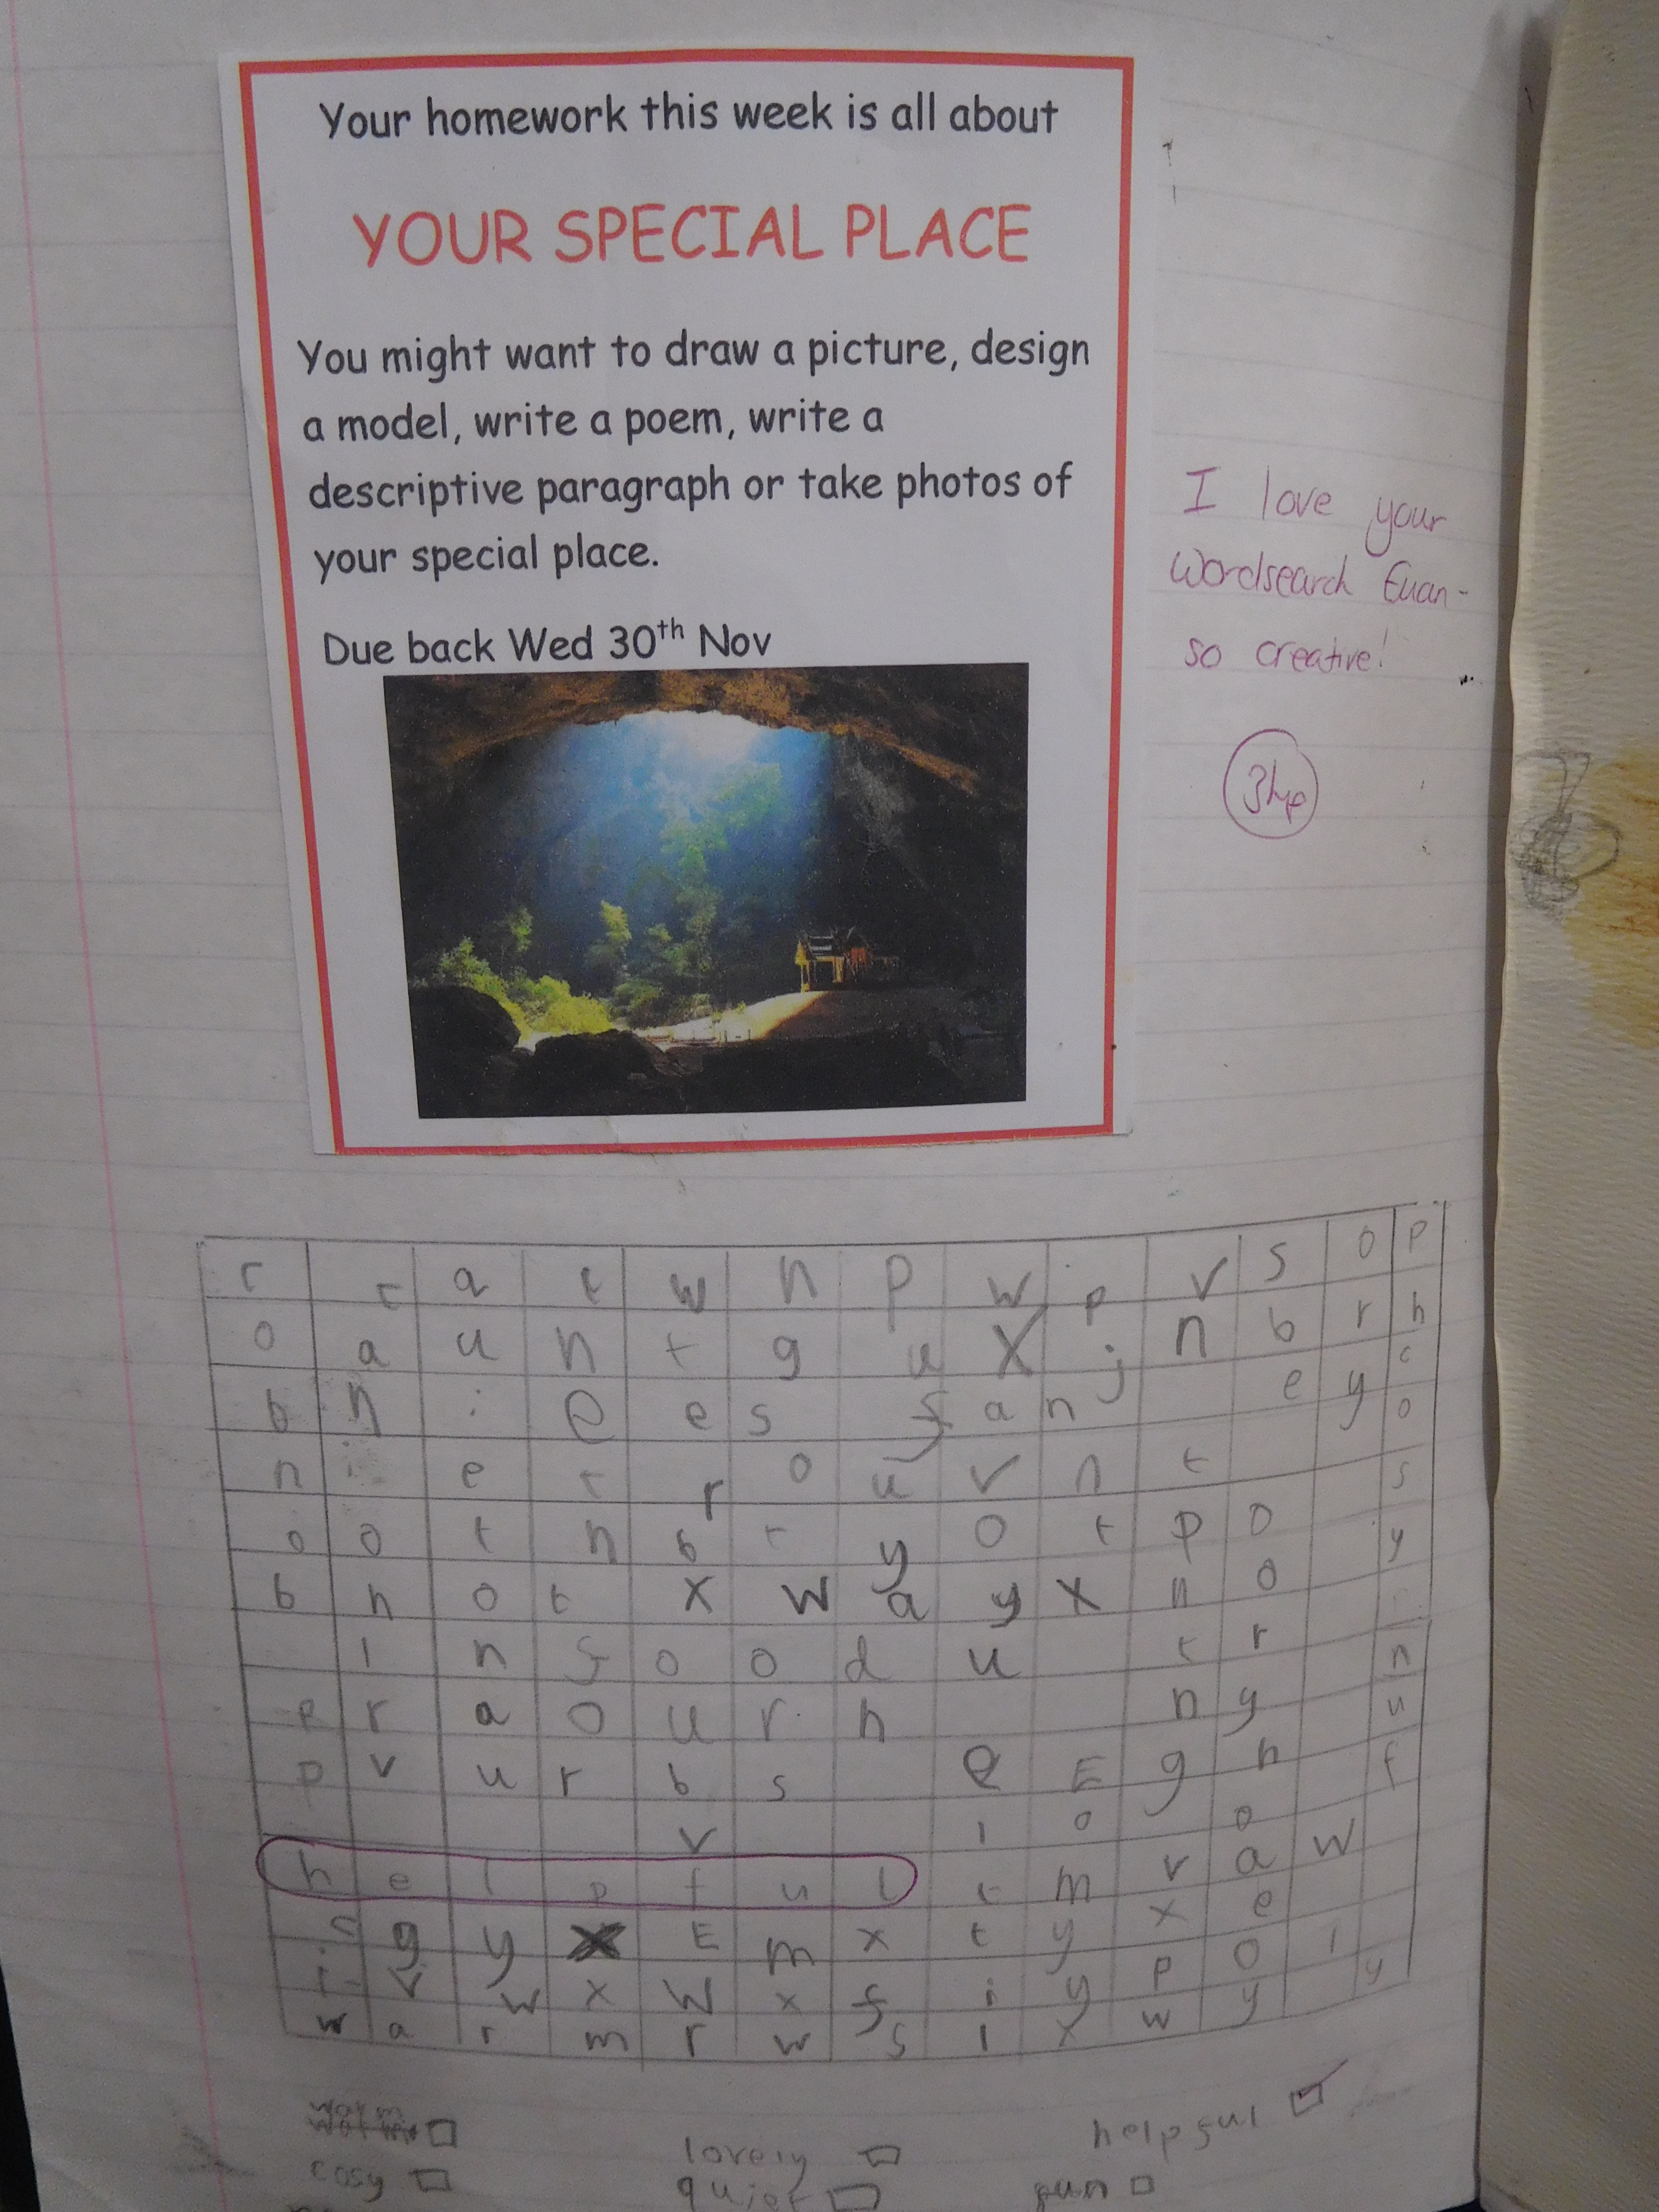 Your homework this week is all about
YOUR SPECIAL PLACE
You might want to draw a picture, design
a model, write a poem, write a
descriptive paragraph or take photos of
your special place.
Due back Wed 30th Nov
I love your
Wordsearch Euan -
so creative!
3hp
r t a t w n p w p v s o p
o a u n t g u x j n b r h
b n i e e s f a n e y c o
n i e t r o u v n t s
o o t n b r y o t p o y
b n o t x w a y x n o
l n f o o d u t r n
e r a o u r h n y u
p v u r b s e E g n f
v l o o
h e l p f u l t m v a w
c g y x E m x t y x e
i v w x w x f i y p o l y
w a r m r w s l x w y
warm
cosy
lovely
quiet
helpful
fun